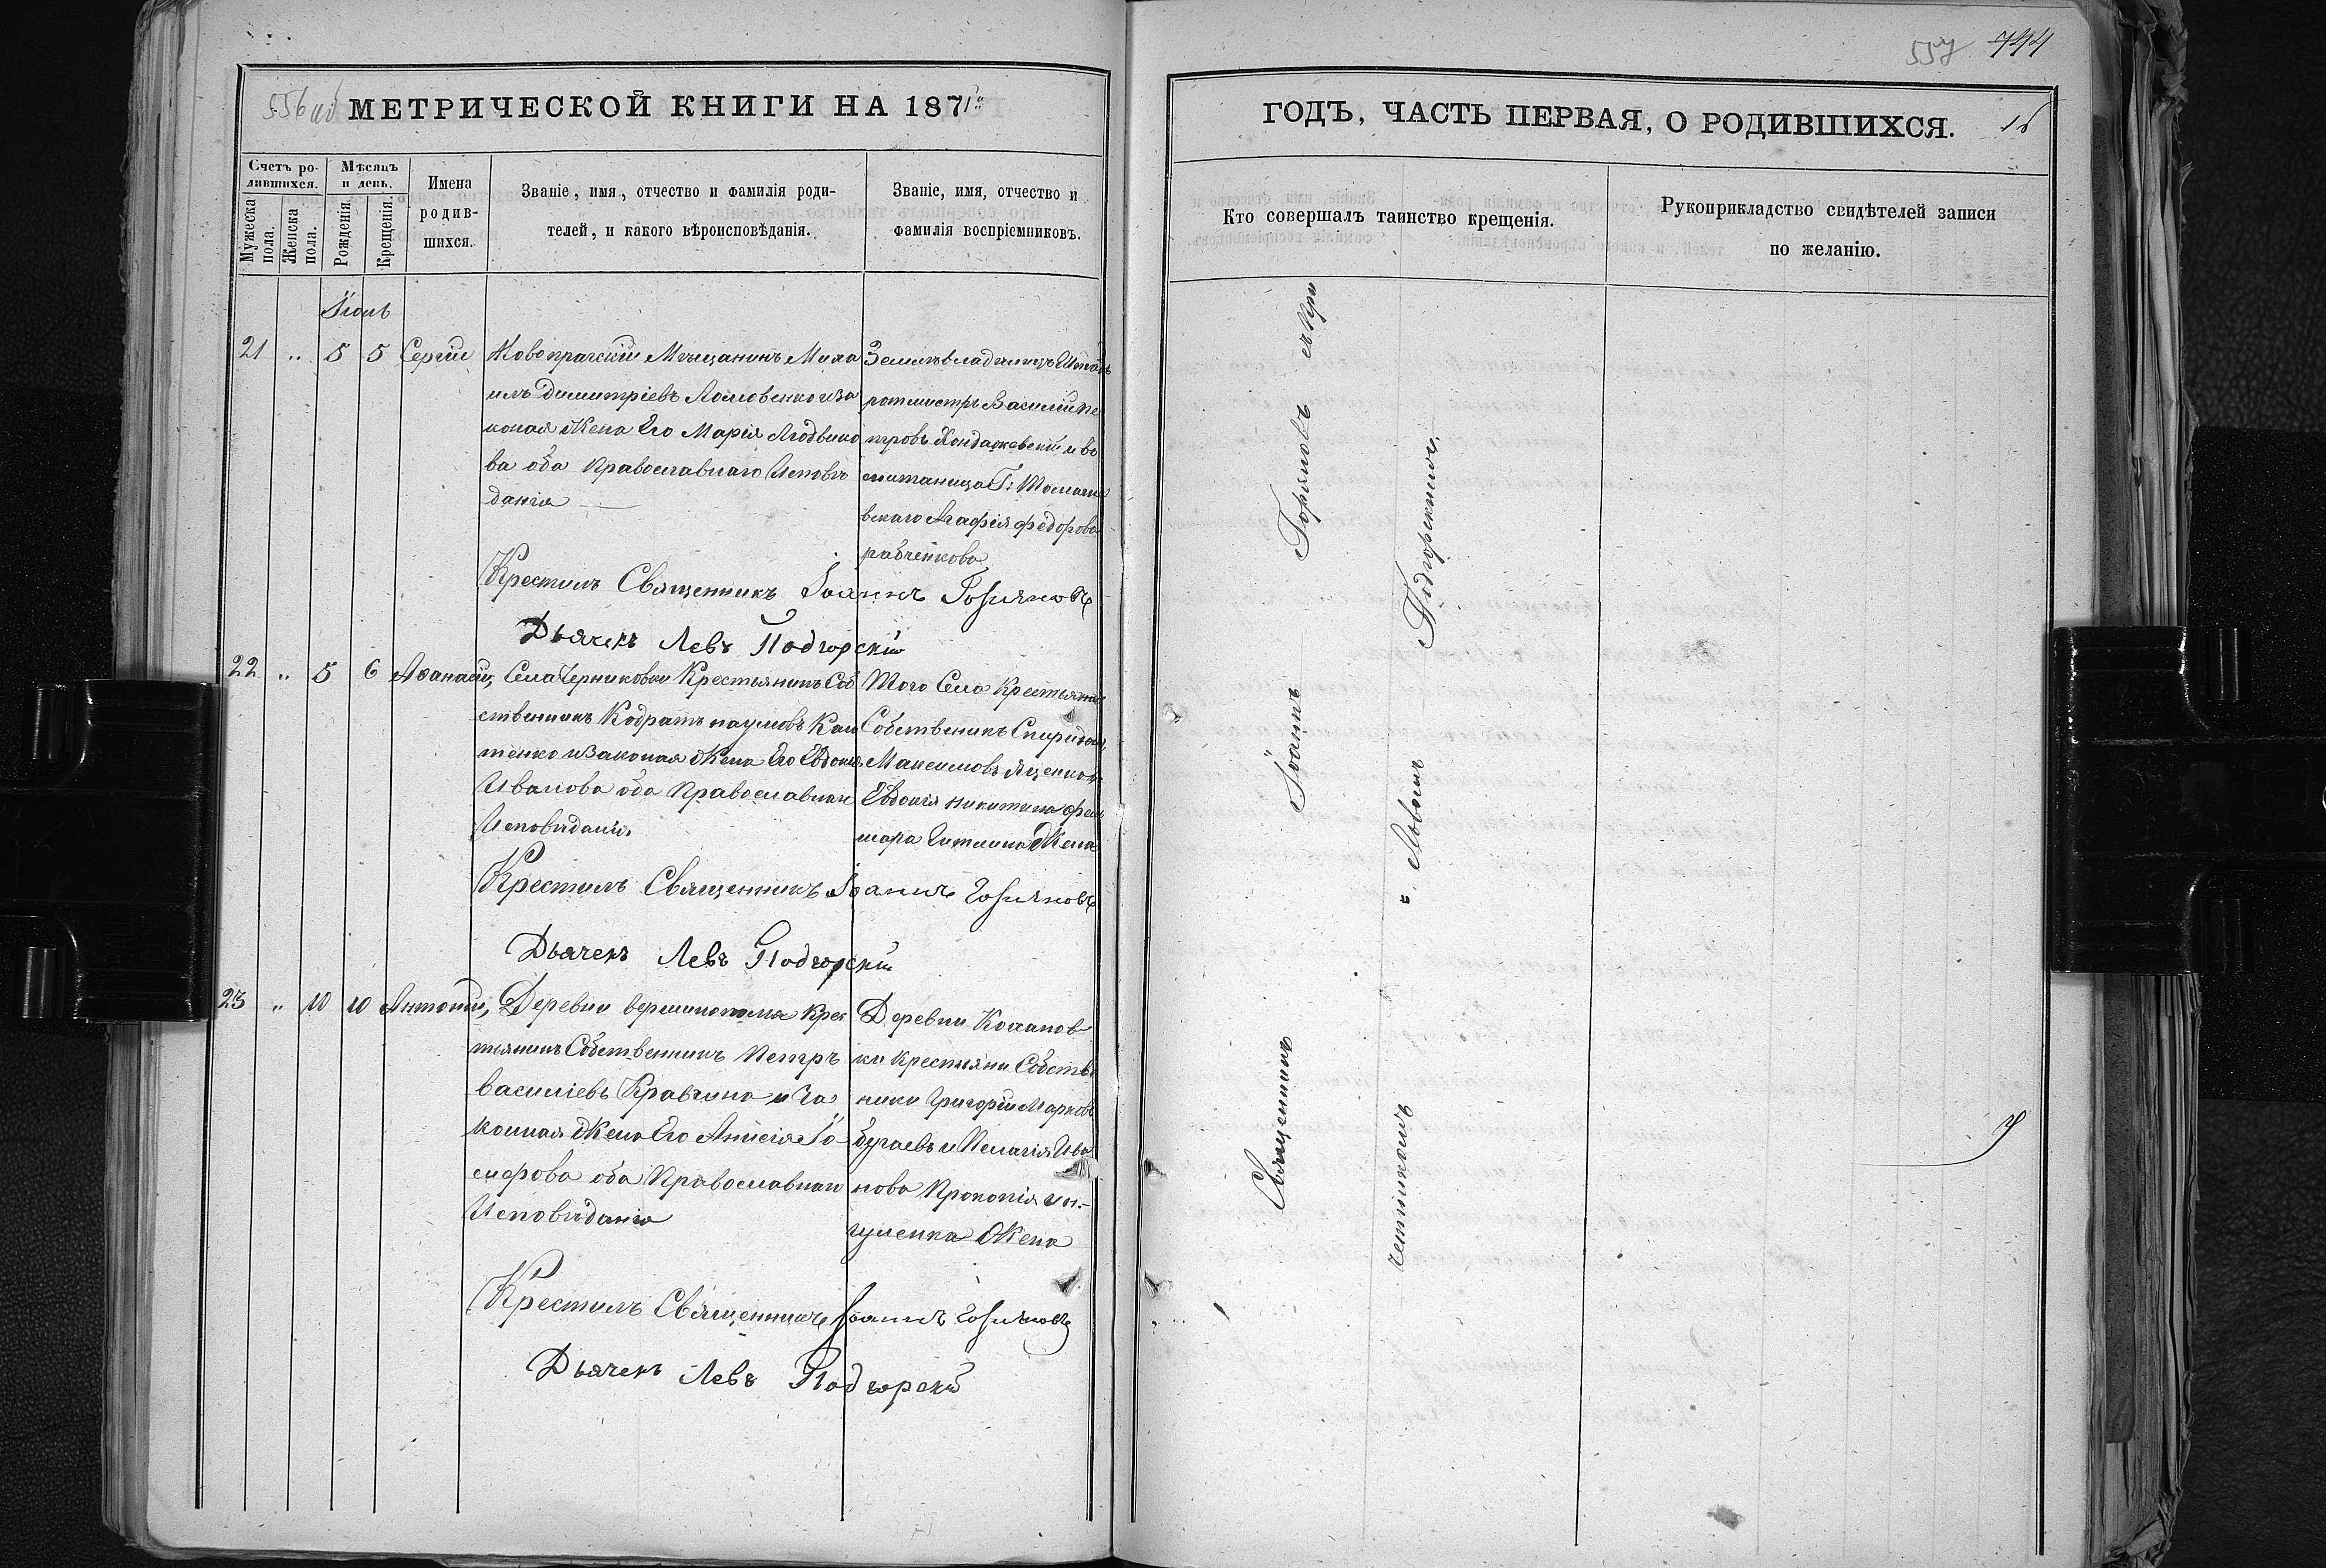 556 об
МЕТРИЧЕСКОЙ КНИГИ НА 1871
Счетъ родившихся.
Мѣсяцъ и день.
Мужеска пола.
Женска пола.
Рожденія.
Крещенія.
Имена
родив-
шихся.
Званіе, имя, отчество и фамилія роди-
телей, и какого вѣроисповѣданія.
Званіе, имя, отчество и
фамилія воспріемниковъ.
Іюнь
21 " 5 5 Сергій
Новопражскій Мѣщанинъ Миха
илъ Димитріевъ Ломовенко иза
коная Жена Его Марія Людвико
ва оба Православнаго Исповѣ
данія
Землевладѣлецъ Штабъ
ротмистръ Василій Пе
тровъ и во
спитаница Г:
вскаго Агафія Федорова
рабченкова
Крестилъ Священникъ Іоаннъ
Дьячекъ Левъ Подгорскій
22 " 5 6 Аѳанасій,
Села Черниковки Крестьянинъ Соб
ственникъ Кодратъ наумовъ
тенко изаконая Жена Его Евдокія
Иванова оба Православнаго
Исповѣданія
Того Села Крестьянинъ
Собственикъ Спиридонъ
Максимовъ
Евдокія никитина
Жена
Крестилъ Священникъ Іоаннъ
Дьячекъ Левъ Подгорскій
23 " 10 10 Антоній,
Деревни Крес
тьянинъ Собственникъ Петръ
василіевъ Кравчина и За
конная Жена Его Анисія Іо-
сифова оба Православнаго
Исповѣданія
Деревни
ки крестьяни Собстве
ники Григорій Марковъ
бугаевъ и Пелагія Ива
нова Прокопія
гуменка Жена
Крестилъ Священникъ Іоаннъ
Дьячекъ Левъ Подгорскій
557 744
ГОДЪ, ЧАСТЬ ПЕРВАЯ, О РОДИВШИХСЯ.
16
Кто совершалъ таинство крещенія.
Рукоприкладство свидѣтелей записи
по желанію.
Священникъ Іоаннъ
съ Львомъ Подгорскимъ.